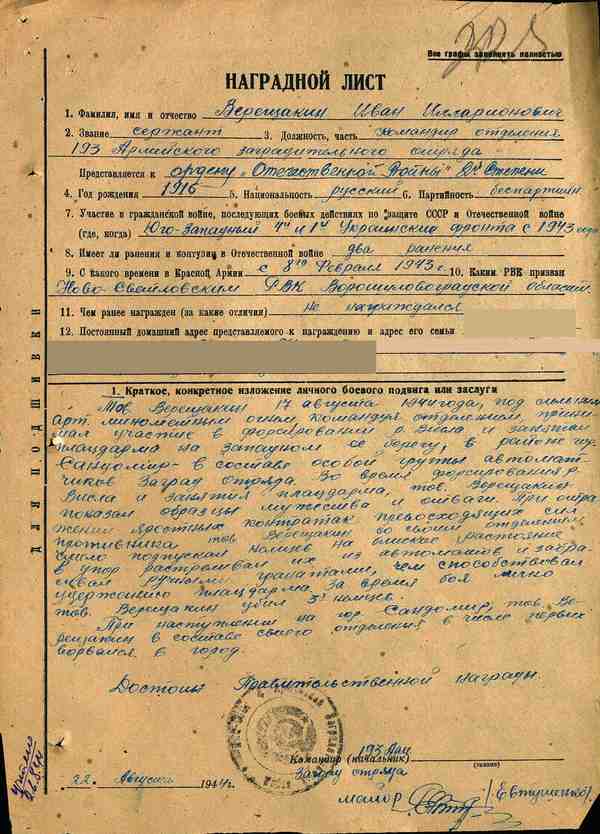 Все графы заполнить полностью
НАГРАДНОЙ ЛИСТ
1. Фамилия, имя и отчество Верещакин Иван Илларионович
2. Звание сержант 3. Должность, часть командир отделения
193 Армейского заградительного отряда
Представляется к ордену „Отечественной Войны" 2й Степени
4. Год рождения 1916 5. Национальность русский 6. Партийность беспартийн
7. Участие в гражданской войне, последующих боевых действиях по защите СССР и Отечественной войне
(где, когда) Юго-Западный 4й и 1й Украинский фронта с 1943 года
8. Имеет ли ранения и контузии в Отечественной войне два ранения
9. С какого времени в Красной Армии с 8го Февраля 1943 г. 10. Каким РВК призван
Ново-Светловским РВК Ворошиловоградской области
11. Чем ранее награжден (за какие отличия) не награждался
12. Постоянный домашний адрес представляемого к награждению и адрес его семьи
ДЛЯ ПОДШИВКИ
1. Краткое, конкретное изложение личного боевого подвига или заслуги
Тов. Верещакин 17 августа 1944 года, под сильным
арт. миномётным огнем командуя отделением, прини-
мал участие в форсировании р. Висла и занятии
плацдарма на западном ее берегу, в районе
Сандомир - в составе особой группы автомат-
чиков Заград отряда. Во время форсирования р.
Висла и занятия плацдарма, тов. Верещакин
показал образцы мужества и отваги. При отра-
жении яростных контратак превосходящих сил
противника тов. Верещакин со своим отделением
смело подпускал немцев на близкое растояние
в упор расстреливал их из автоматов и забра-
сывал ручными гранатами, чем способствовал
удержанию плацдарма. За время боя лично
тов. Верещакин убил 3х немцев.
При наступлении на гор. Сандомир, тов. Ве-
рещакин в составе своего отделения в числе первых
ворвался в город.
Достоин Правительственной награды.
193 Арм
Командир (начальник)
(звание)
Заград отряда
22 Августа 1944 г.
майор /Евтушенко/